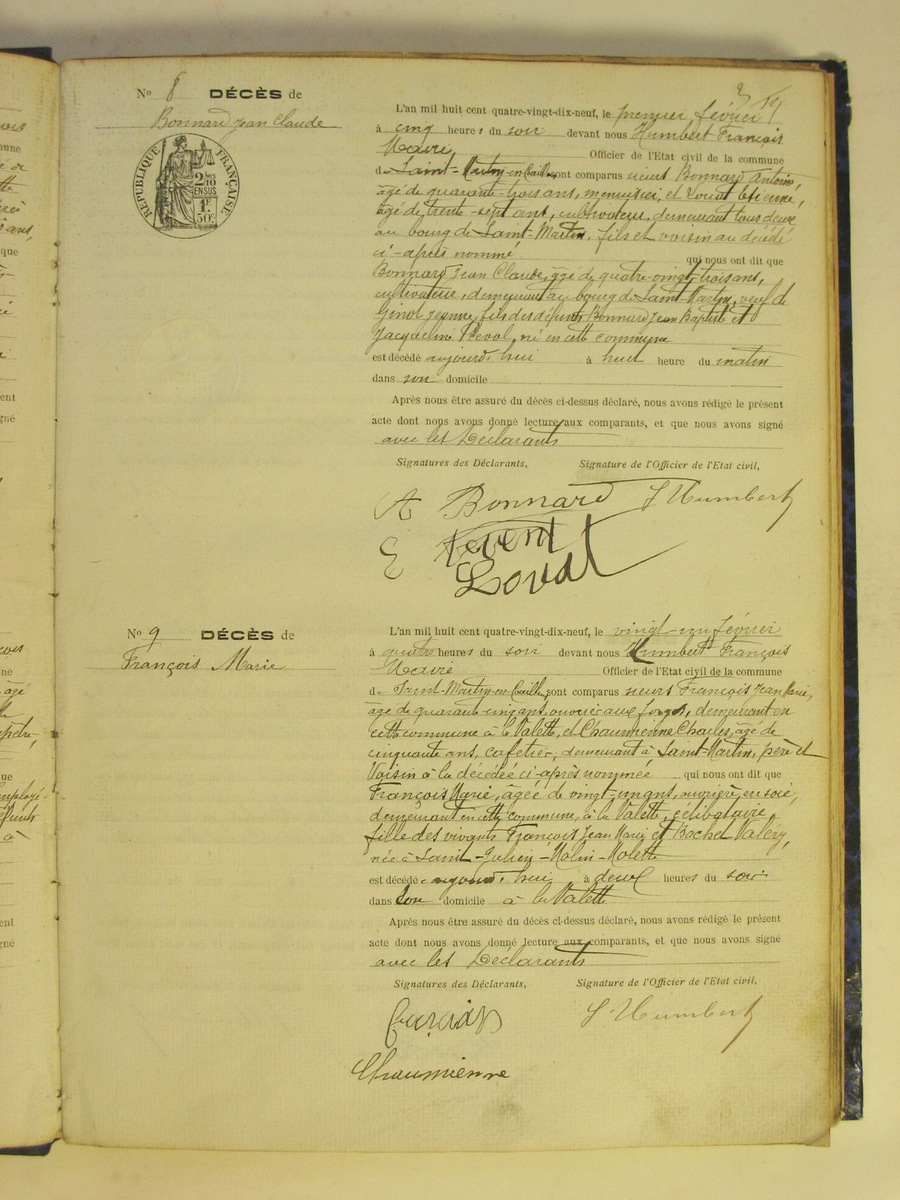 No 8 DÉCÈS de
Bonnard Jean Claude
RÉPUBLIQUE FRANÇAISE
2/10 EN SUS
1f 50c
L'an mil huit cent quatre-vingt-dix-neuf, le premier février
à cinq heures du soir devant nous Humbert François
Maire Officier de l'Etat civil de la commune
de Saint-Martin-en-Coailleux sont comparus sieurs Bonnard Antoine,
âgé de quarante trois ans, menuisier, et Lovat Etienne,
âgé de trente-sept ans, cultivateur, demeurant tous deux
au bourg de Saint-Martin, fils et voisin au décédé
ci-après nommé qui nous ont dit que
Bonnard Jean Claude, âgé de quatre-vingt-trois ans,
cultivateur, demeurant au bourg de Saint-Martin, veuf de
Ginot Jeanne, fils des defunts Bonnard Jean Baptiste et
Jacqueline né en cette commune
est décédé aujourd'hui à huit heure du matin
dans son domicile
Après nous être assuré du décès ci-dessus déclaré, nous avons rédigé le présent
acte dont nous avons donné lecture aux comparants, et que nous avons signé
avec les Déclarants
Signatures des Déclarants, Signature de l'Officier de l'Etat civil,
A Bonnard F Humbert
E
Lovat
No 9 DÉCÈS de
François Marie
L'an mil huit cent quatre-vingt-dix-neuf, le vingt-un février
à quatre heures du soir devant nous Humbert François
Maire Officier de l'Etat civil de la commune
de Saint-Martin-en-Coailleux sont comparus sieurs François Jean Marie,
âgé de quarante cinq ans, ouvrier aux forges, demeurant en
cette commune à la Valette, et Chaumienne Charles, âgé de
cinquante ans, cafetier, demeurant à Saint-Martin, père et
Voisin à la décédée ci-après nommée qui nous ont dit que
François Marie, âgée de vingt-un ans, ouvrière en soie,
demeurant en cette commune, à la Valette, célibataire,
fille des vivants François Jean Marie et Bachet Valéry,
née à Saint-Julien-Molin-Molette
est décédée aujourd'hui à deux heures du soir
dans Son domicile à la Valette
Après nous être assuré du décès ci-dessus déclaré, nous avons rédigé le présent
acte dont nous avons donné lecture aux comparants, et que nous avons signé
avec les Déclarants
Signatures des Déclarants, Signature de l'Officier de l'Etat civil,
F Humbert
Chaumienne